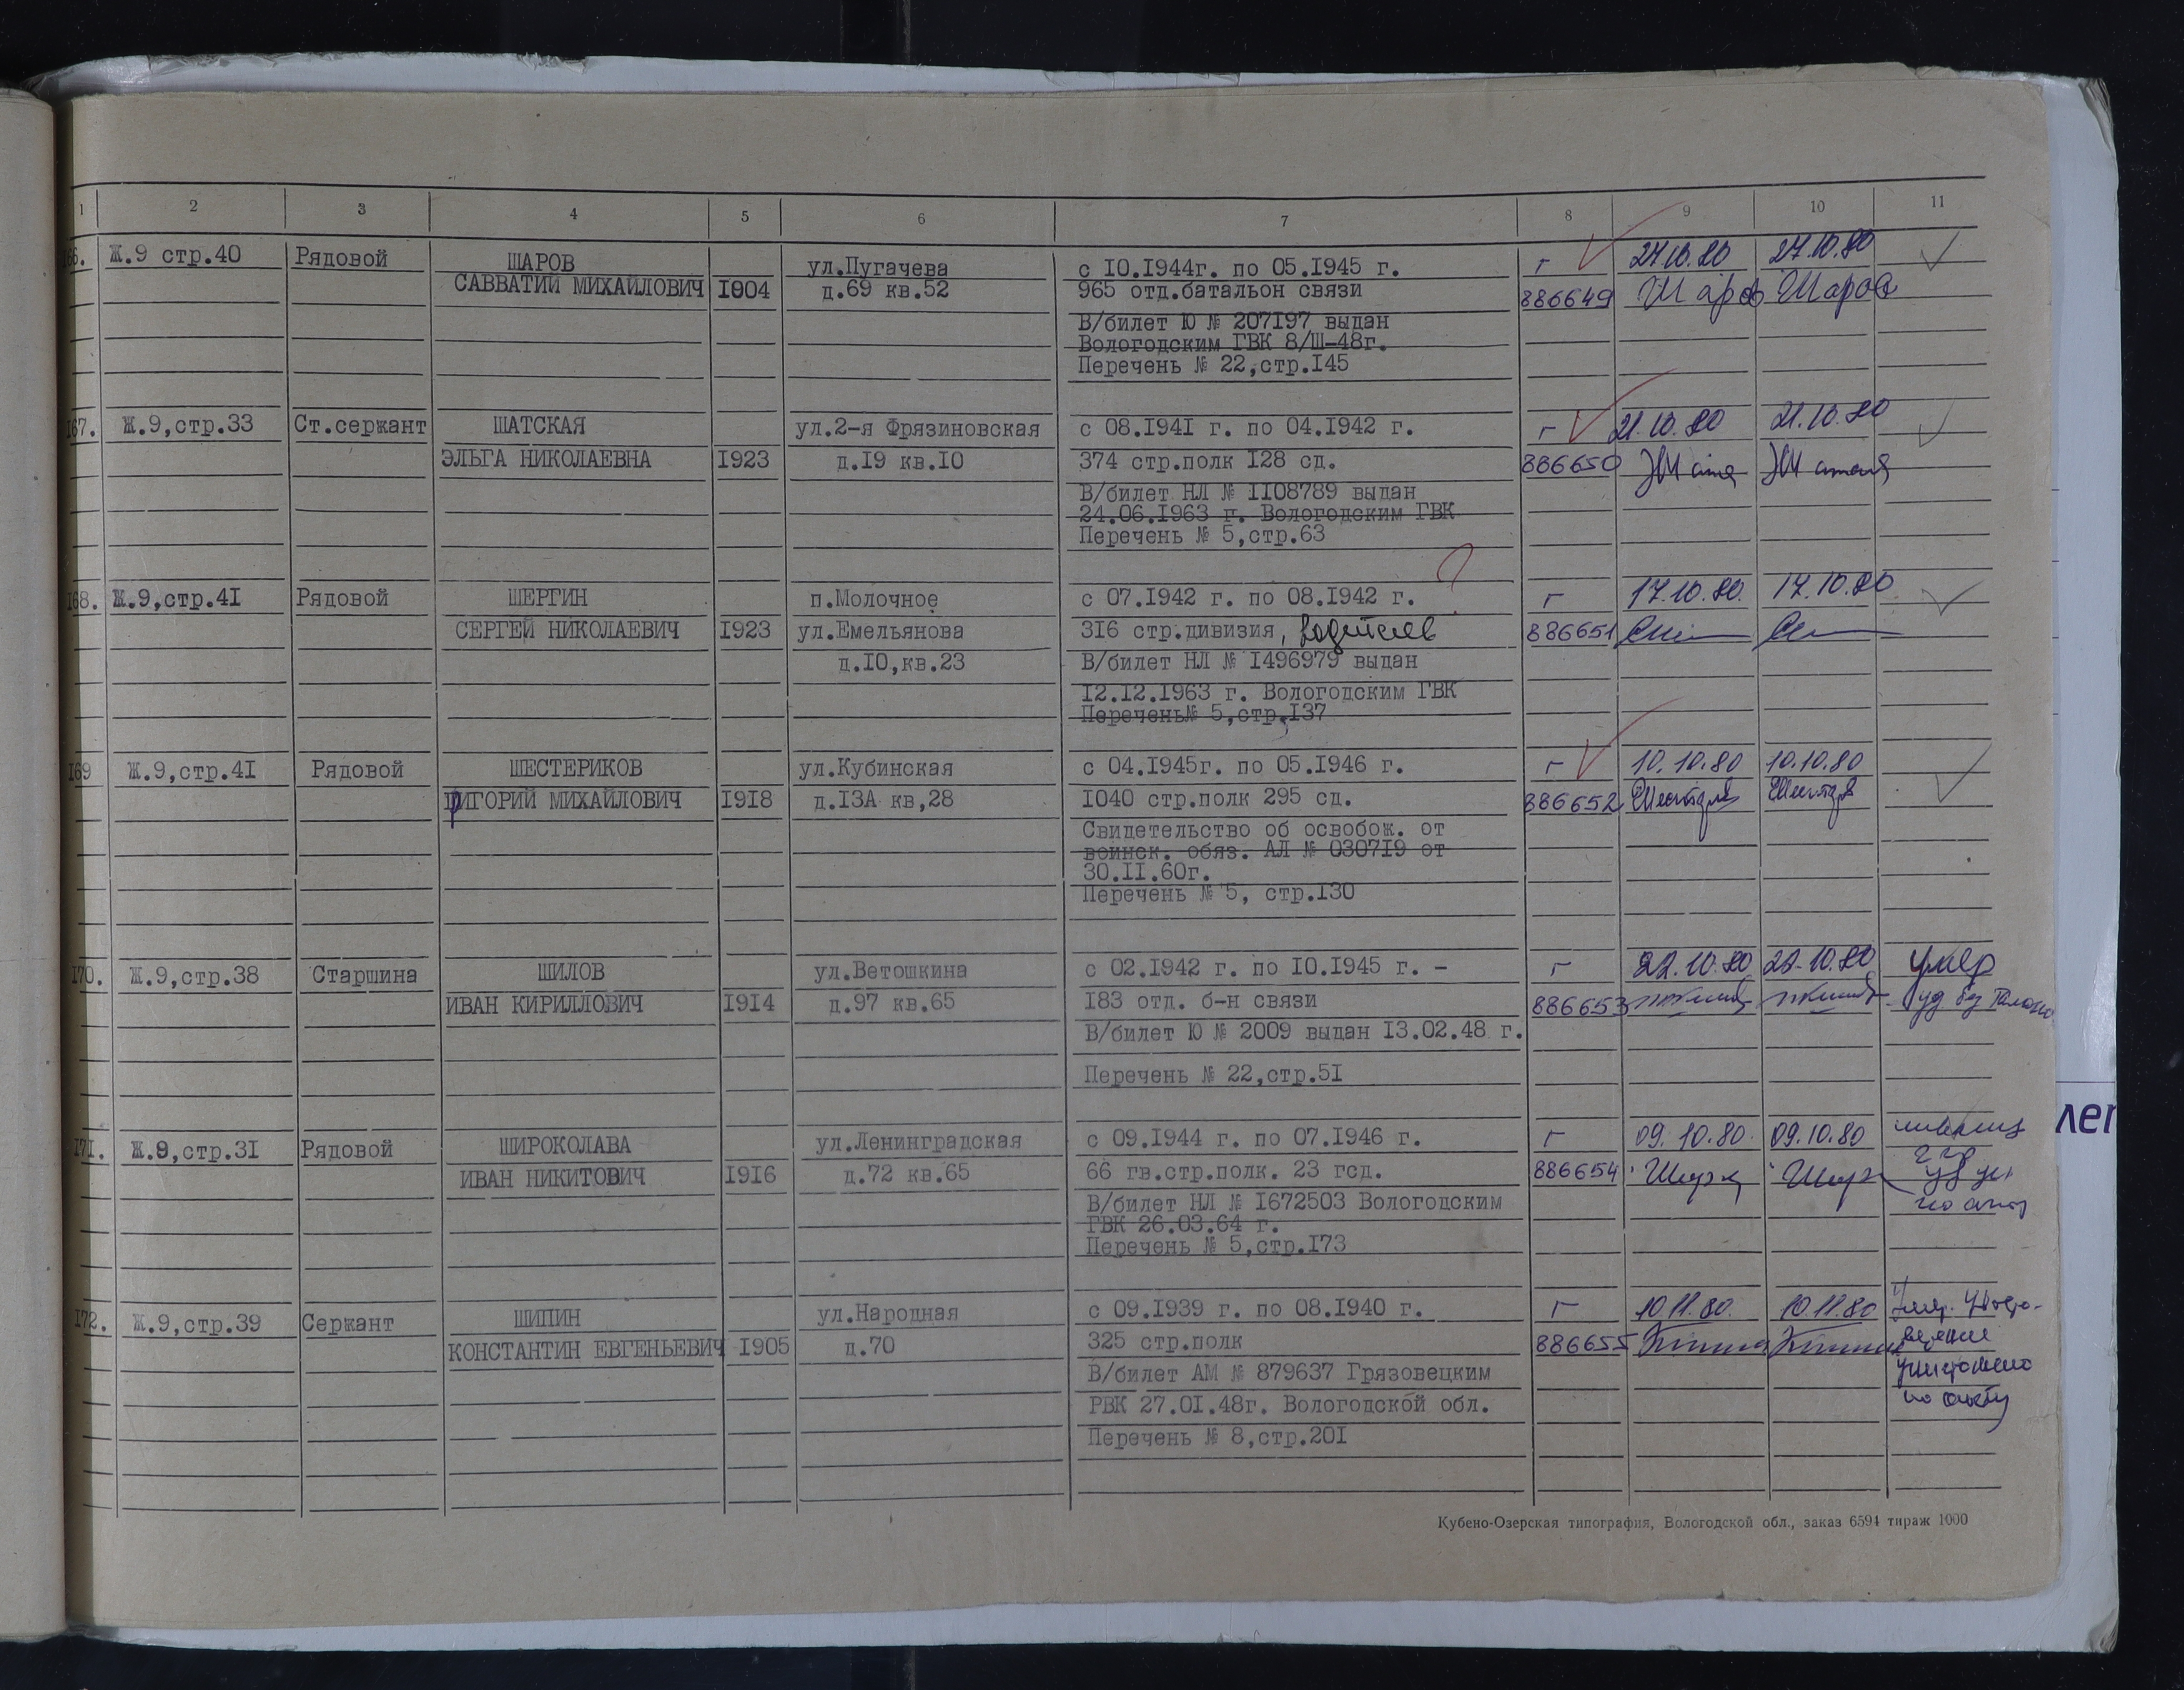 1 2 3 4 5 6 7 8 9 10 11
66. Ж.9 стр.40 Рядовой ШАРОВ ул.Пугачева с 10.1944г. по 05.1945 г. г 27.10.80 27.10.80
САВВАТИЙ МИХАЙЛОВИЧ 1904 д.69 кв.52 965 отд.батальон связи 886649 Шаров Шаров
В/билет Ю № 207197 выдан
Вологодским ГВК 8/Ш-48г.
Перечень № 22,стр.145
167. Ж.9,стр.33 Ст.сержант ШАТСКАЯ ул.2-я Фрязиновская с 08.1941 г. по 04.1942 г. г 21.10.80 21.10.80
ЭЛЬГА НИКОЛАЕВНА 1923 д.19 кв.10 374 стр.полк 128 сд. 886650
В/билет НЛ № 1108789 выдан
24.06.1963 г. Вологодским ГВК
Перечень № 5,стр.63
?
168. Ж.9,стр.41 Рядовой ШЕРГИН п.Молочное с 07.1942 г. по 08.1942 г. г 17.10.80. 17.10.80
СЕРГЕЙ НИКОЛАЕВИЧ 1923 ул.Емельянова 316 стр.дивизия, 886651
д.10,кв.23 В/билет НЛ № 1496979 выдан
12.12.1963 г. Вологодским ГВК
Перечень№ 5,стр.137
169 Ж.9,стр.41 Рядовой ШЕСТЕРИКОВ ул.Кубинская с 04.1945г. по 05.1946 г. г 10.10.80 10.10.80
ГРИГОРИЙ МИХАЙЛОВИЧ 1918 д.13А кв,28 1040 стр.полк 295 сд. 886652
Свидетельство об освобож. от
воинск. обяз. АЛ № 030719 от
30.11.60г.
Перечень № 5, стр.130
170. Ж.9,стр.38 Старшина ШИЛОВ ул.Ветошкина с 02.1942 г. по 10.1945 г. - г 22.10.80 22.10.80 умер
ИВАН КИРИЛЛОВИЧ 1914 д.97 кв.65 183 отд. б-н связи 886653 уд без талона
В/билет Ю № 2009 выдан 13.02.48 г.
Перечень № 22,стр.51
171. Ж.9,стр.31 Рядовой ШИРОКОЛАВА ул.Ленинградская с 09.1944 г. по 07.1946 г. г 09.10.80. 09.10.80
ИВАН НИКИТОВИЧ 1916 д.72 кв.65 66 гв.стр.полк. 23 гсд. 886654
В/билет НЛ № 1672503 Вологодским
ГВК 26.03.64 г.
Перечень № 5,стр.173
172. Ж.9,стр.39 Сержант ШИПИН ул.Народная с 09.1939 г. по 08.1940 г. г 10.11.80. 10.11.80 Умер. Удосто-
КОНСТАНТИН ЕВГЕНЬЕВИЧ 1905 д.70 325 стр.полк 886655 верение
В/билет АМ № 879637 Грязовецким уничтожено
РВК 27.01.48г. Вологодской обл. по акту
Перечень № 8,стр.201
Кубено-Озерская типография, Вологодской обл., заказ 6594 тираж 1000